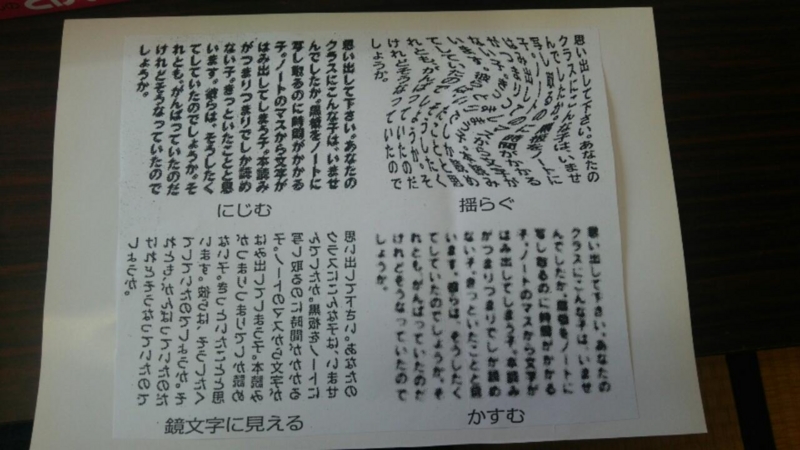 思い出して下さい。あなたの
クラスにこんな子は、いませ
んでしたか。黒板をノートに
写し取るのに時間がかかる
子。ノートのマスから文字が
はみ出してしまう子。本読み
がつまりつまりでしか読め
ない子。きっといたことと思
います。彼らは、そうしたく
てしていたのでしょうか。そ
れとも、がんばっていたのだ
けれどそうなっていたので
しょうか。
にじむ
思い出して下さい。あなたの
クラスにこんな子は、いませ
んでしたか。黒板をノートに
写し取るのに時間がかかる
子。ノートのマスから文字が
はみ出してしまう子。本読み
がつまりつまりでしか読め
ない子。きっといたことと思
います。彼らは、そうしたく
てしていたのでしょうか。そ
れとも、がんばっていたのだ
けれどそうなっていたので
しょうか。
揺らぐ
思い出して下さい。あなたの
クラスにこんな子は、いませ
んでしたか。黒板をノートに
写し取るのに時間がかかる
子。ノートのマスから文字が
はみ出してしまう子。本読み
がつまりつまりでしか読め
ない子。きっといたことと思
います。彼らは、そうしたく
てしていたのでしょうか。そ
れとも、がんばっていたのだ
けれどそうなっていたので
しょうか。
鏡文字に見える
思い出して下さい。あなたの
クラスにこんな子は、いませ
んでしたか。黒板をノートに
写し取るのに時間がかかる
子。ノートのマスから文字が
はみ出してしまう子。本読み
がつまりつまりでしか読め
ない子。きっといたことと思
います。彼らは、そうしたく
てしていたのでしょうか。そ
れとも、がんばっていたのだ
けれどそうなっていたので
しょうか。
かすむ